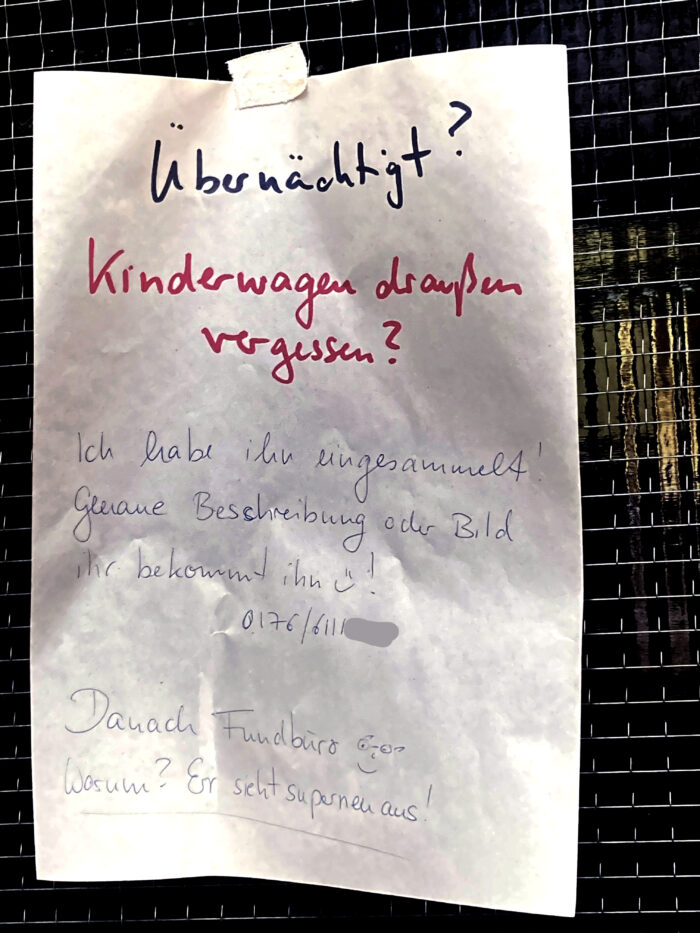 Übernächtigt?
Kinderwagen draußen
vergessen?
Ich habe ihn eingesammelt!
Genaue Besschreibung oder Bild
ihr bekommt ihn!
0176/6111
Danach Fundbüro
Warum? Er sieht superneu aus!